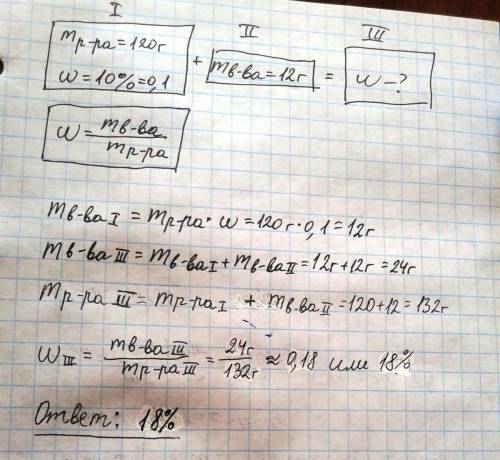 I II III
mр-ра = 120г
ω = 10% = 0,1
+ mв-ва = 12г = ω - ?
ω = mв-ва / mр-ра
mв-ва I = mр-ра · ω = 120г · 0,1 = 12г
mв-ва III = mв-ва I + mв-ва II = 12г + 12г = 24г
mр-ра III = mр-ра I + mв-ва II = 120 + 12 = 132г
ω III = mв-ва III / mр-ра III = 24г / 132г ≈ 0,18 или 18%
Ответ: 18%